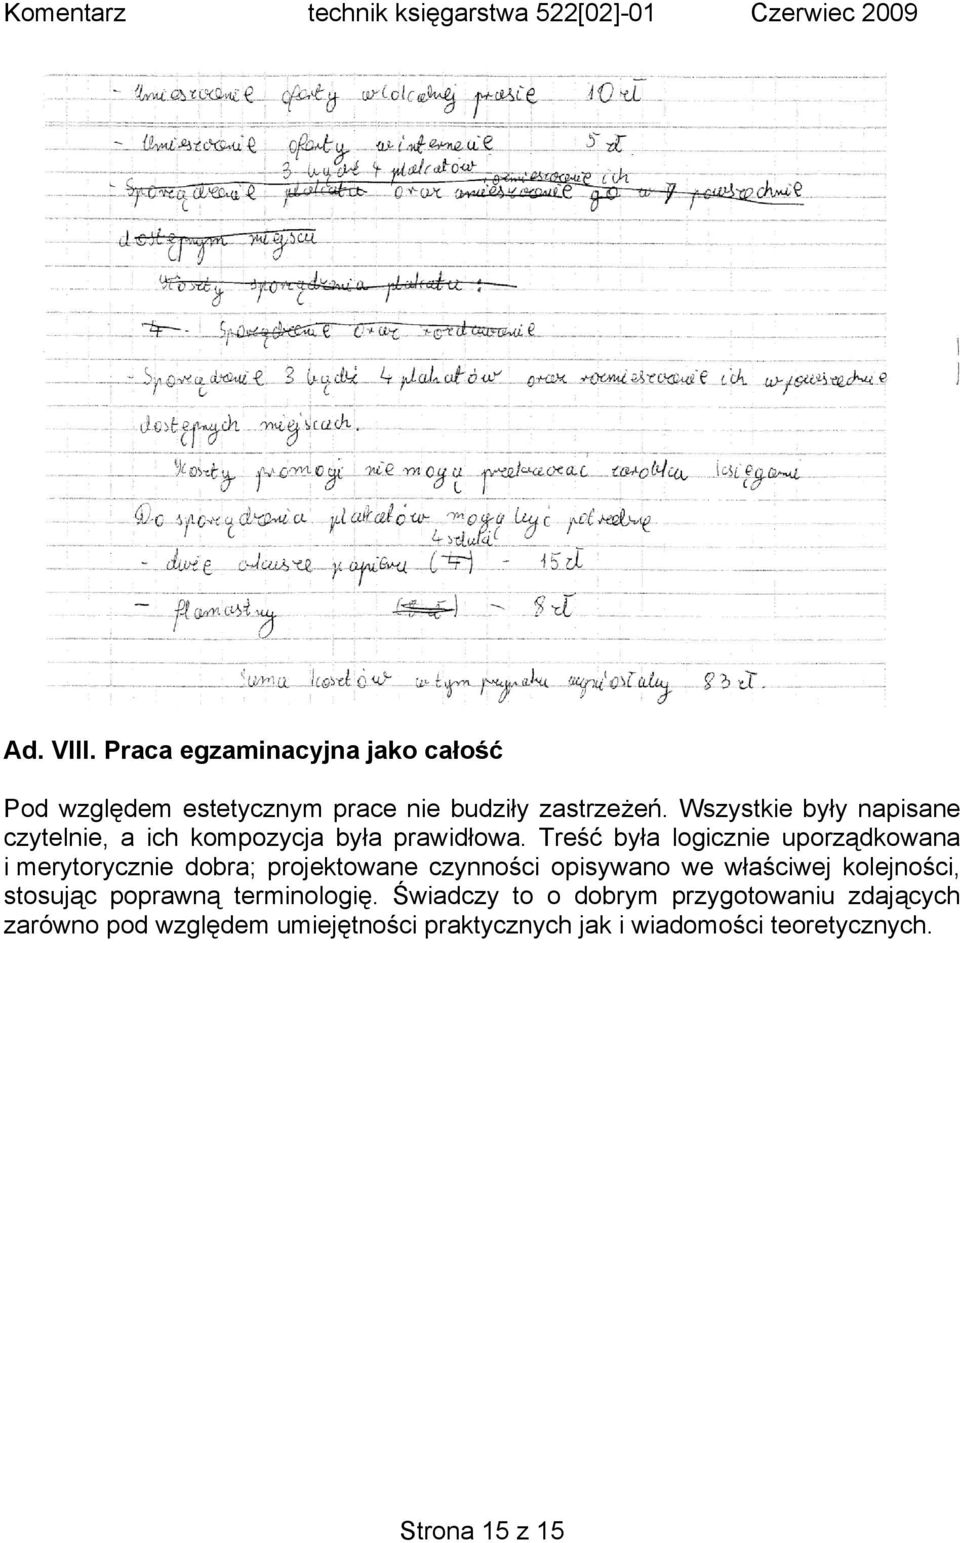 Komentarz technik księgarstwa 522[02]-01 Czerwiec 2009
- Umieszczenie oferty w lokalnej prasie 10 zł
- Umieszczenie oferty w internecie 5 zł
3 bądź 4 plakatów umieszczenie ich
- Sporządzenie plakatu oraz umieszczenie go w powszechnie
dostępnym miejscu
Koszty sporządzenia plakatu :
- Sporządzenie oraz rozdawanie
- Sporządzenie 3 bądź 4 plakatów oraz rozmieszczenie ich w powszechnie
dostępnych miejscach.
Koszty promocji nie mogą przekraczać zarobku księgarni
Do sporządzenia plakatów mogą być potrzebne
4 sztuki
- dwie arkusze papieru ( ) - 15 zł
- flamastry - 8 zł
Suma kosztów w tym przypadku wyniosłaby 83 zł.
Ad. VIII. Praca egzaminacyjna jako całość
Pod względem estetycznym prace nie budziły zastrzeżeń. Wszystkie były napisane
czytelnie, a ich kompozycja była prawidłowa. Treść była logicznie uporządkowana
i merytorycznie dobra; projektowane czynności opisywano we właściwej kolejności,
stosując poprawną terminologię. Świadczy to o dobrym przygotowaniu zdających
zarówno pod względem umiejętności praktycznych jak i wiadomości teoretycznych.
Strona 15 z 15